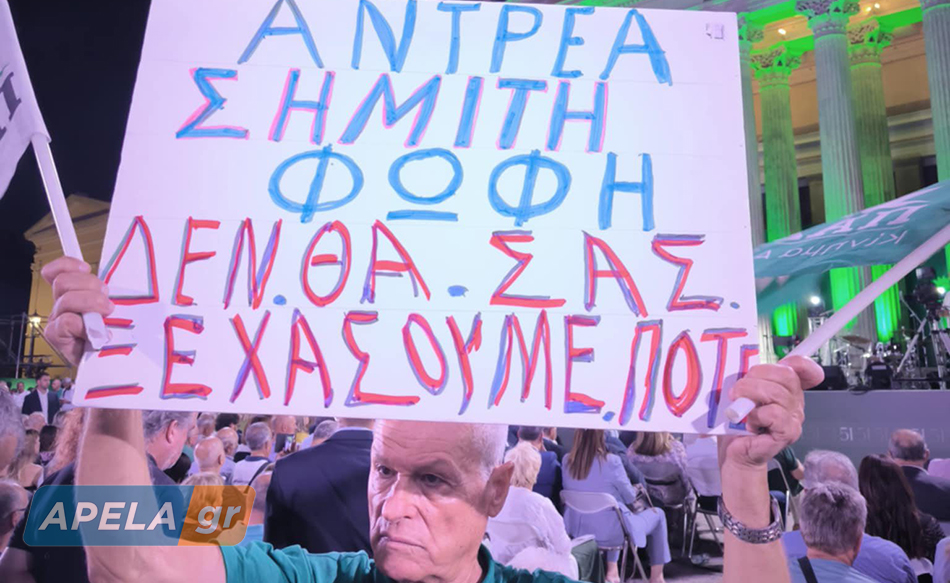 ΑΝΤΡΕΑ
ΣΗΜΙΤΗ
ΦΩΦΗ
ΔΕΝ.ΘΑ.ΣΑΣ.
ΞΕΧΑΣΟΥΜΕ.ΠΟΤΕ
Κίνημα
APELA.gr